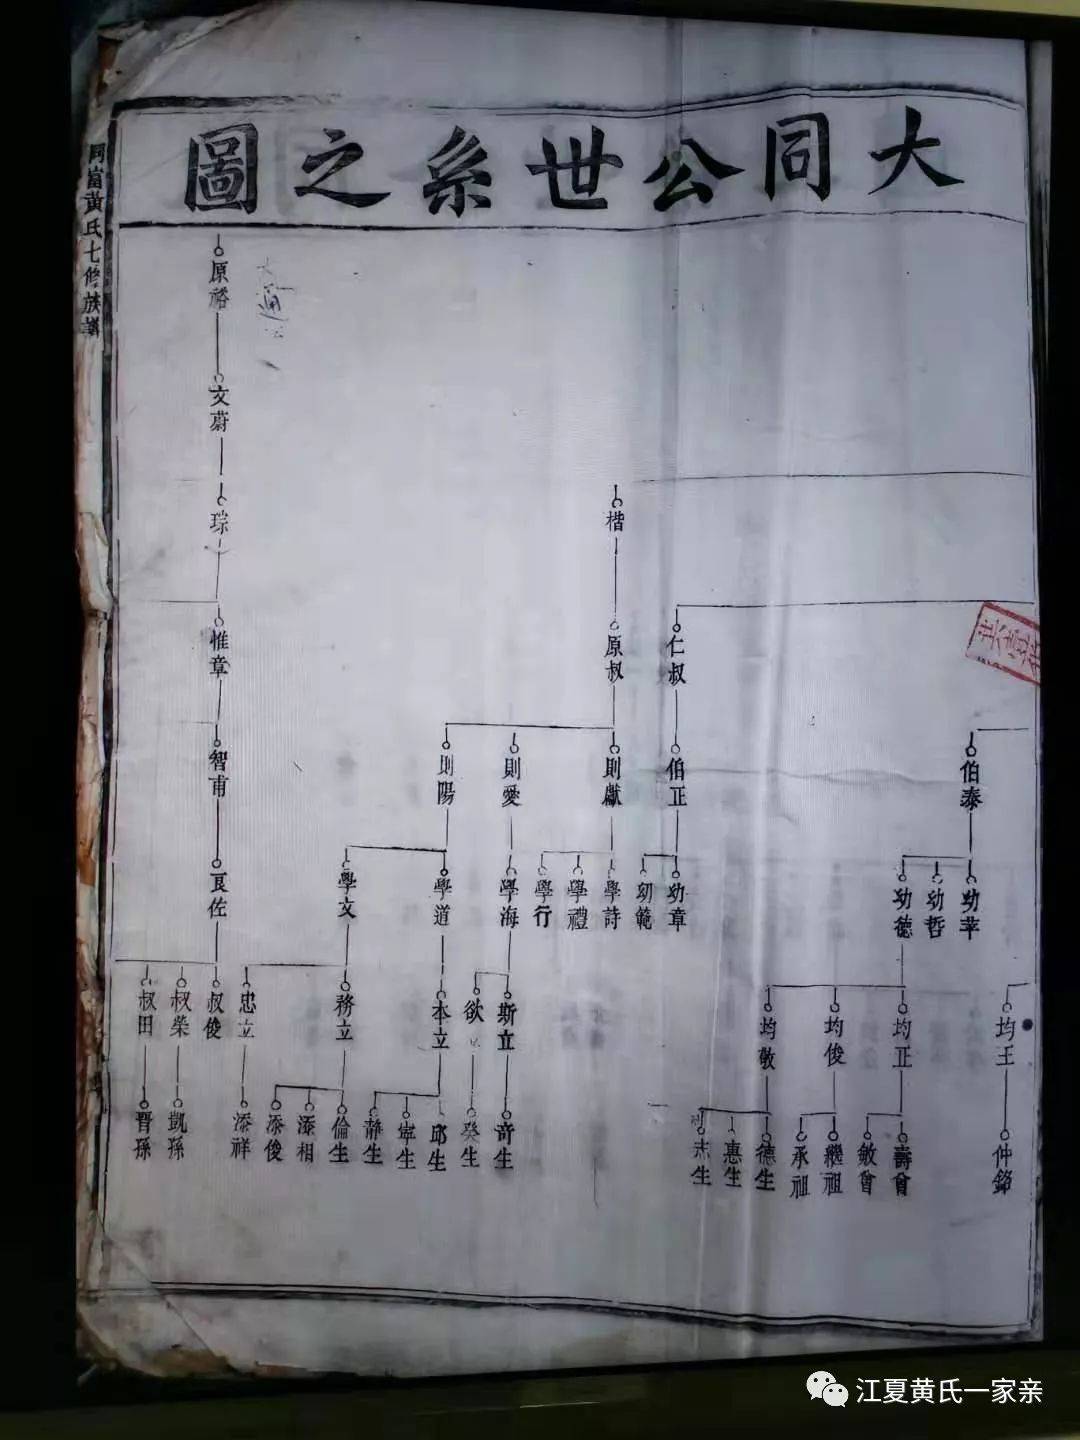 大同公世系之圖
黃氏七修族譜
楷
原裕
文蔚
琮
惟章
智甫
良佐
叔俊
叔榮
叔田
凱孫
晋孫
仁叔
原叔
伯泰
伯正
則獻
則愛
則陽
幼莘
幼哲
幼德
幼章
幼範
學詩
學禮
學行
學海
學道
學文
均王
均正
均俊
均敬
斯立
欲
本立
務立
忠立
仲銘
壽曾
敏曾
繼祖
承祖
德生
惠生
志生
奇生
癸生
邱生
寧生
靜生
倫生
添相
添俊
添祥
江夏黄氏一家亲